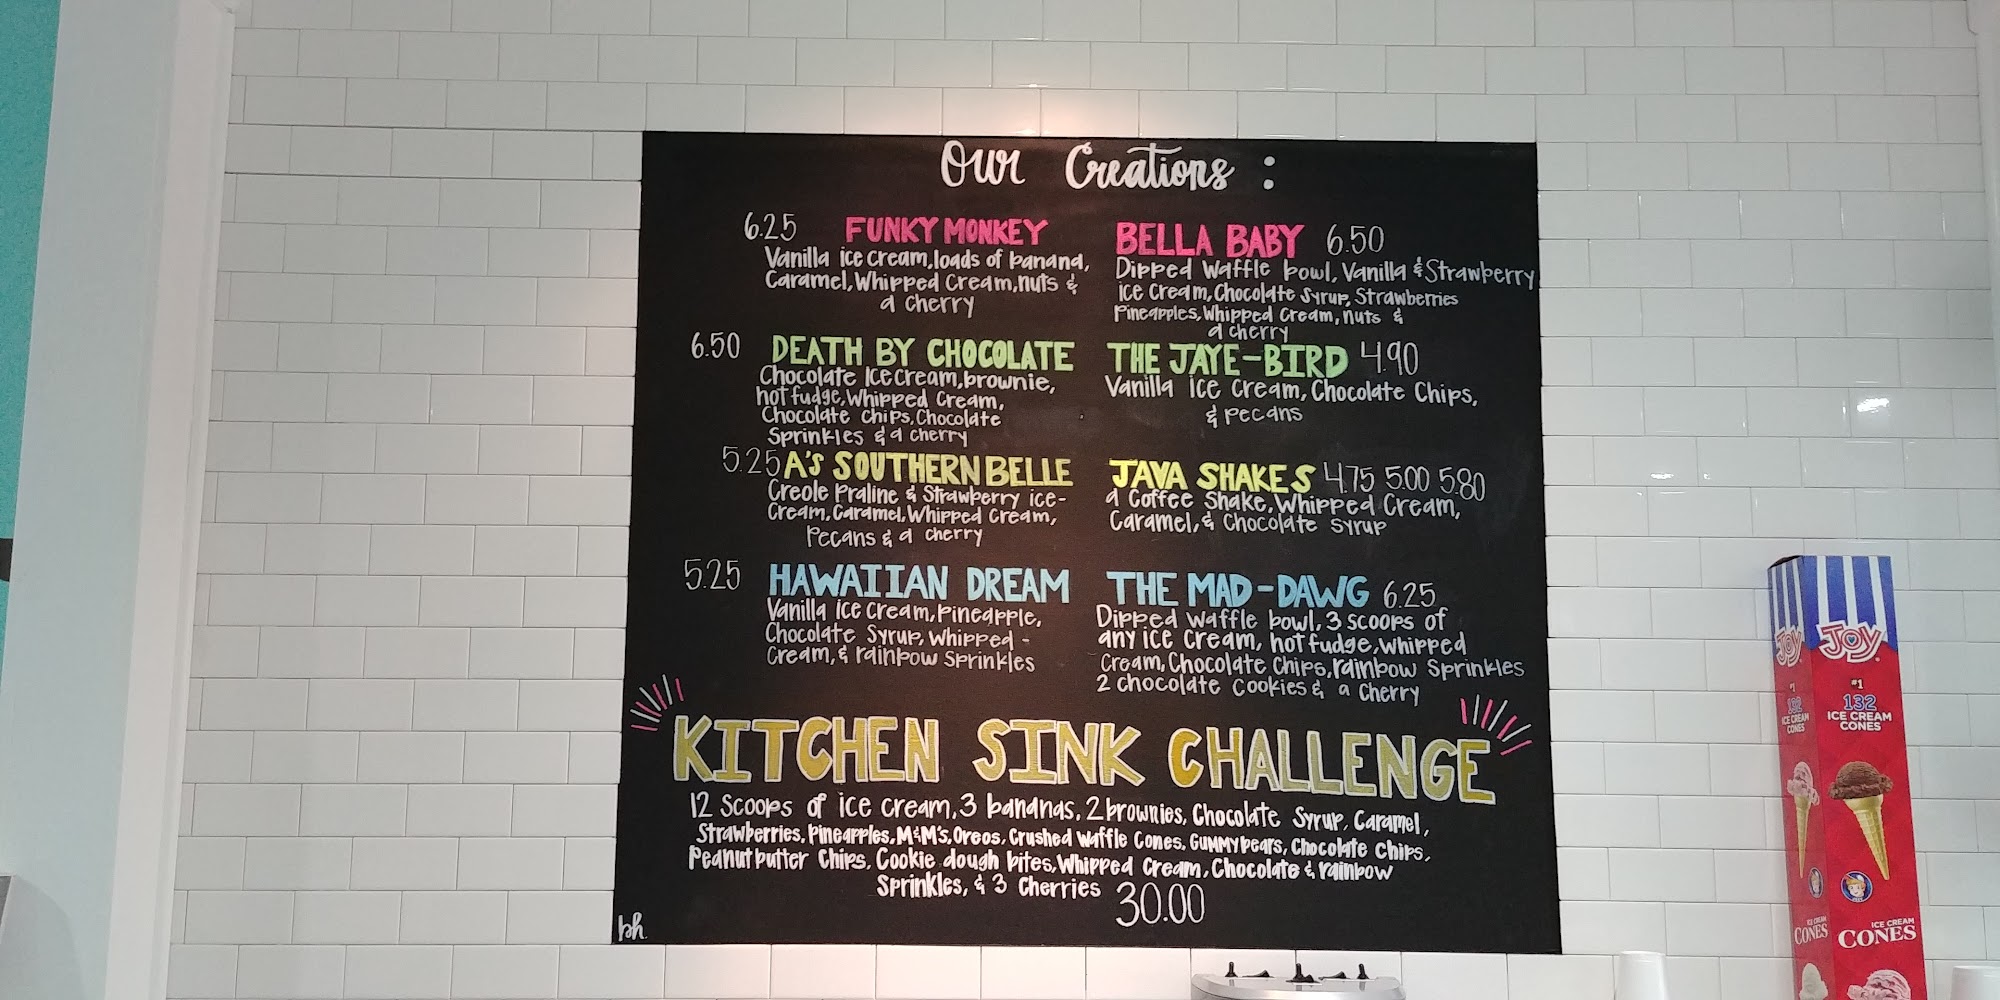 Our Creations :
6.25 FUNKY MONKEY
Vanilla ice cream, loads of banana,
Caramel, Whipped Cream, nuts &
a cherry
BELLA BABY 6.50
Dipped Waffle bowl, Vanilla & Strawberry
Ice Cream, Chocolate Syrup, Strawberries
Pineapples, Whipped Cream, nuts &
a cherry
6.50 DEATH BY CHOCOLATE
Chocolate Ice Cream, brownie,
hot fudge, Whipped Cream,
Chocolate Chips, Chocolate
Sprinkles & a cherry
THE JAYE-BIRD 4.90
Vanilla Ice Cream, Chocolate Chips,
& Pecans
5.25 A'S SOUTHERN BELLE
Creole Praline & Strawberry ice-
Cream, Caramel, Whipped Cream,
Pecans & a cherry
JAVA SHAKES 4.75 5.00 5.80
a Coffee Shake, Whipped Cream,
Caramel, & Chocolate Syrup
5.25 HAWAIIAN DREAM
Vanilla Ice Cream, Pineapple,
Chocolate Syrup, Whipped -
Cream, & rainbow Sprinkles
THE MAD-DAWG 6.25
Dipped Waffle bowl, 3 scoops of
any ice cream, hot fudge, whipped
Cream, Chocolate Chips, rainbow Sprinkles
2 chocolate Cookies & a Cherry
KITCHEN SINK CHALLENGE
12 Scoops of ice cream, 3 bananas, 2 brownies, Chocolate Syrup, Caramel,
Strawberries, Pineapples, M&M's, Oreos, Crushed Waffle Cones, Gummybears, Chocolate Chips,
Peanutbutter Chips, Cookie dough bites, Whipped Cream, Chocolate & rainbow
Sprinkles, & 3 Cherries 30.00
bh.
JOY
#1
132
ICE CREAM
CONES
ICE CREAM
CONES
JOY
#1
132
ICE CREAM
CONES
ICE CREAM
CONES